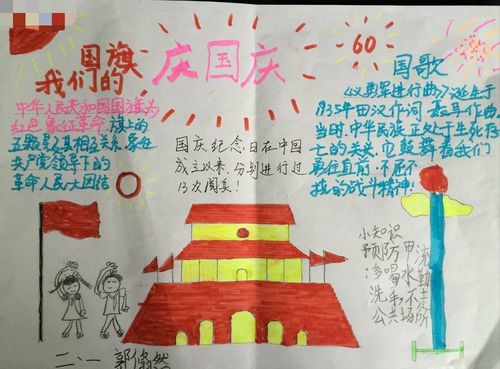 国旗
我们的
庆国庆
60
国歌
中华人民共和国国旗为
红色,象征革命,旗上的
五颗星及其相互关系,象征
共产党领导下的
革命人民大团结
国庆纪念日在中国
成立以来,分别进行过
13次阅兵!
《义勇军进行曲》诞生于
1935年田汉作词,聂耳作曲,
当时,中华民族正处于生死存
亡的关头,它鼓舞着我们
勇往直前,不屈不
挠的战斗精神!
小知识
预防甲流
多喝水勤
洗手,不走
公共场所
二、一